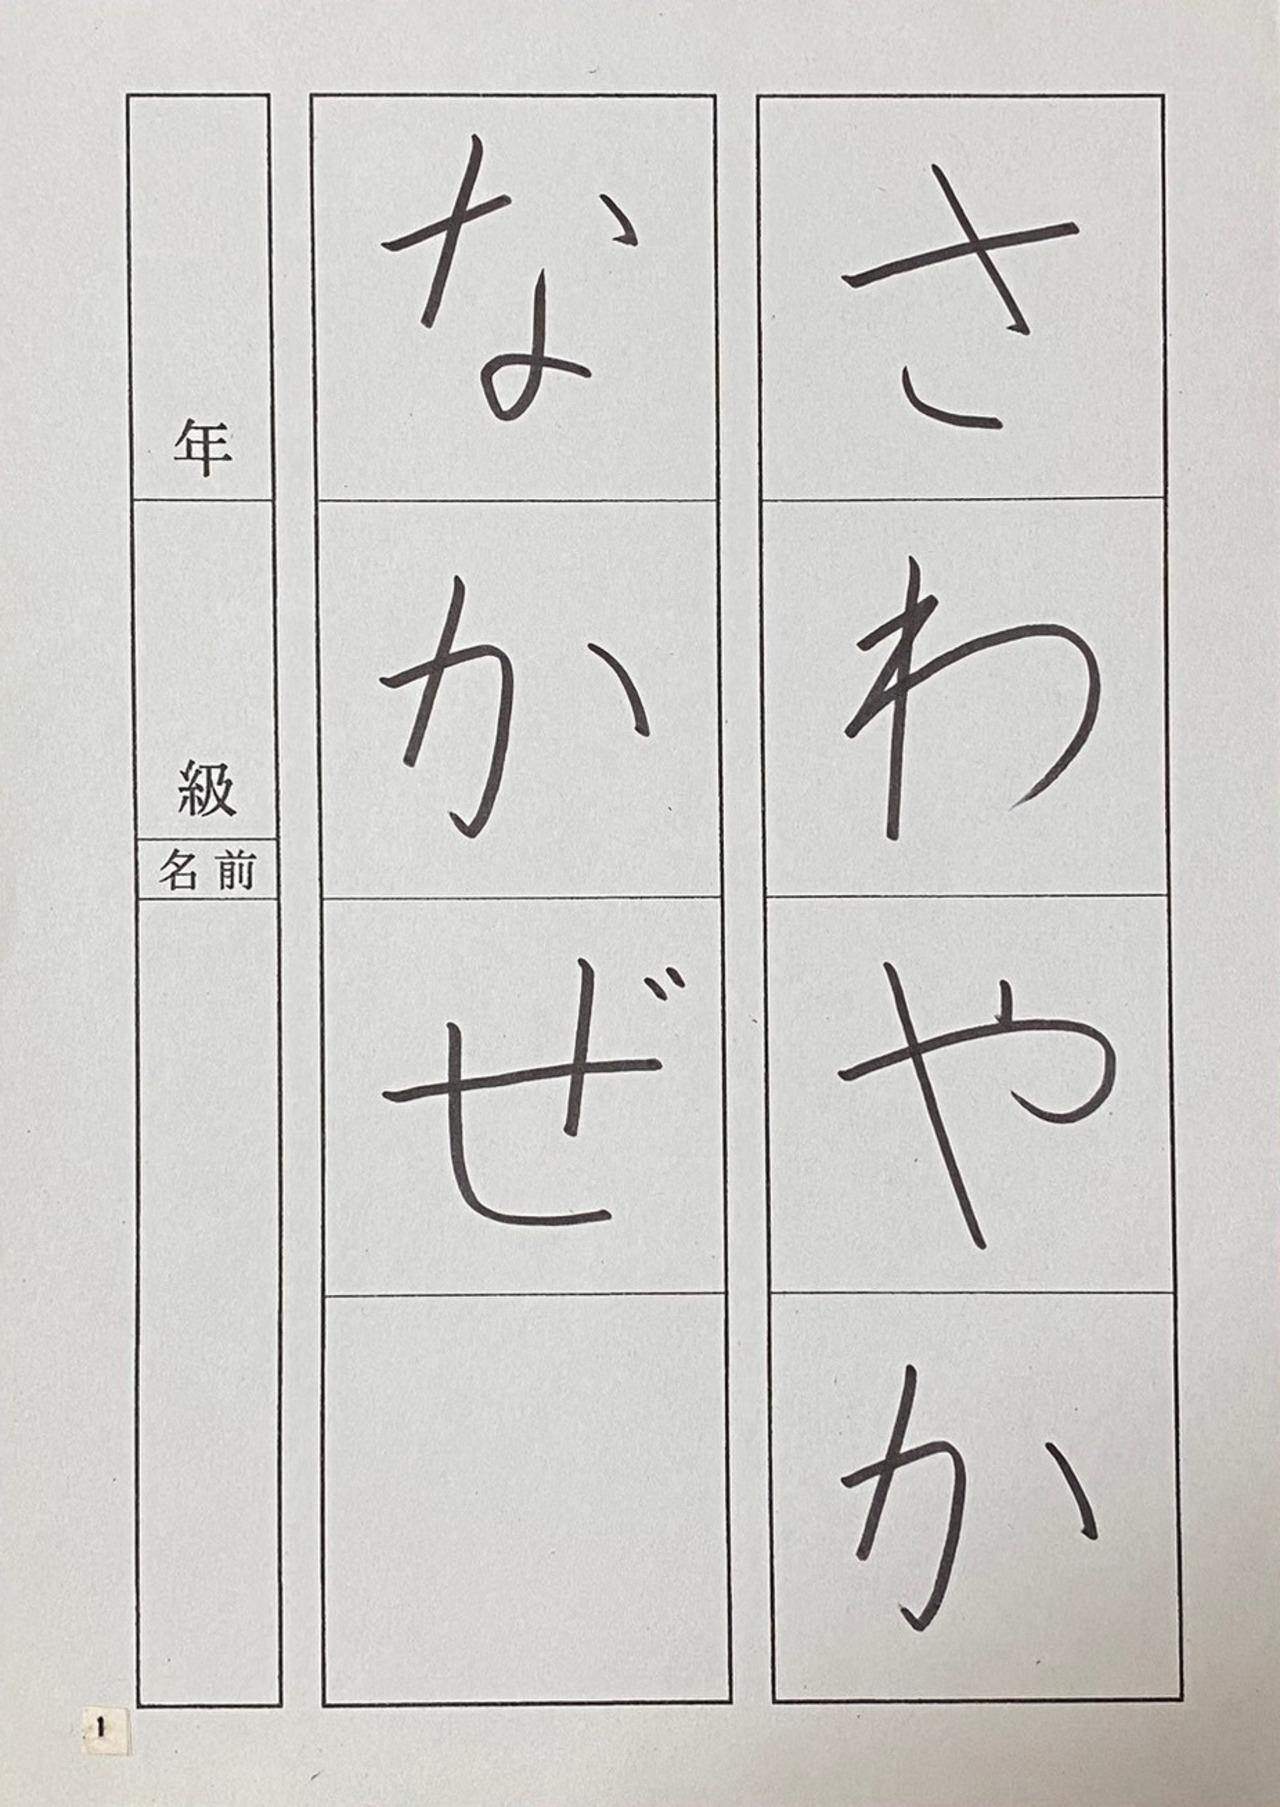 さわやか
なかぜ
年
級
名前
1